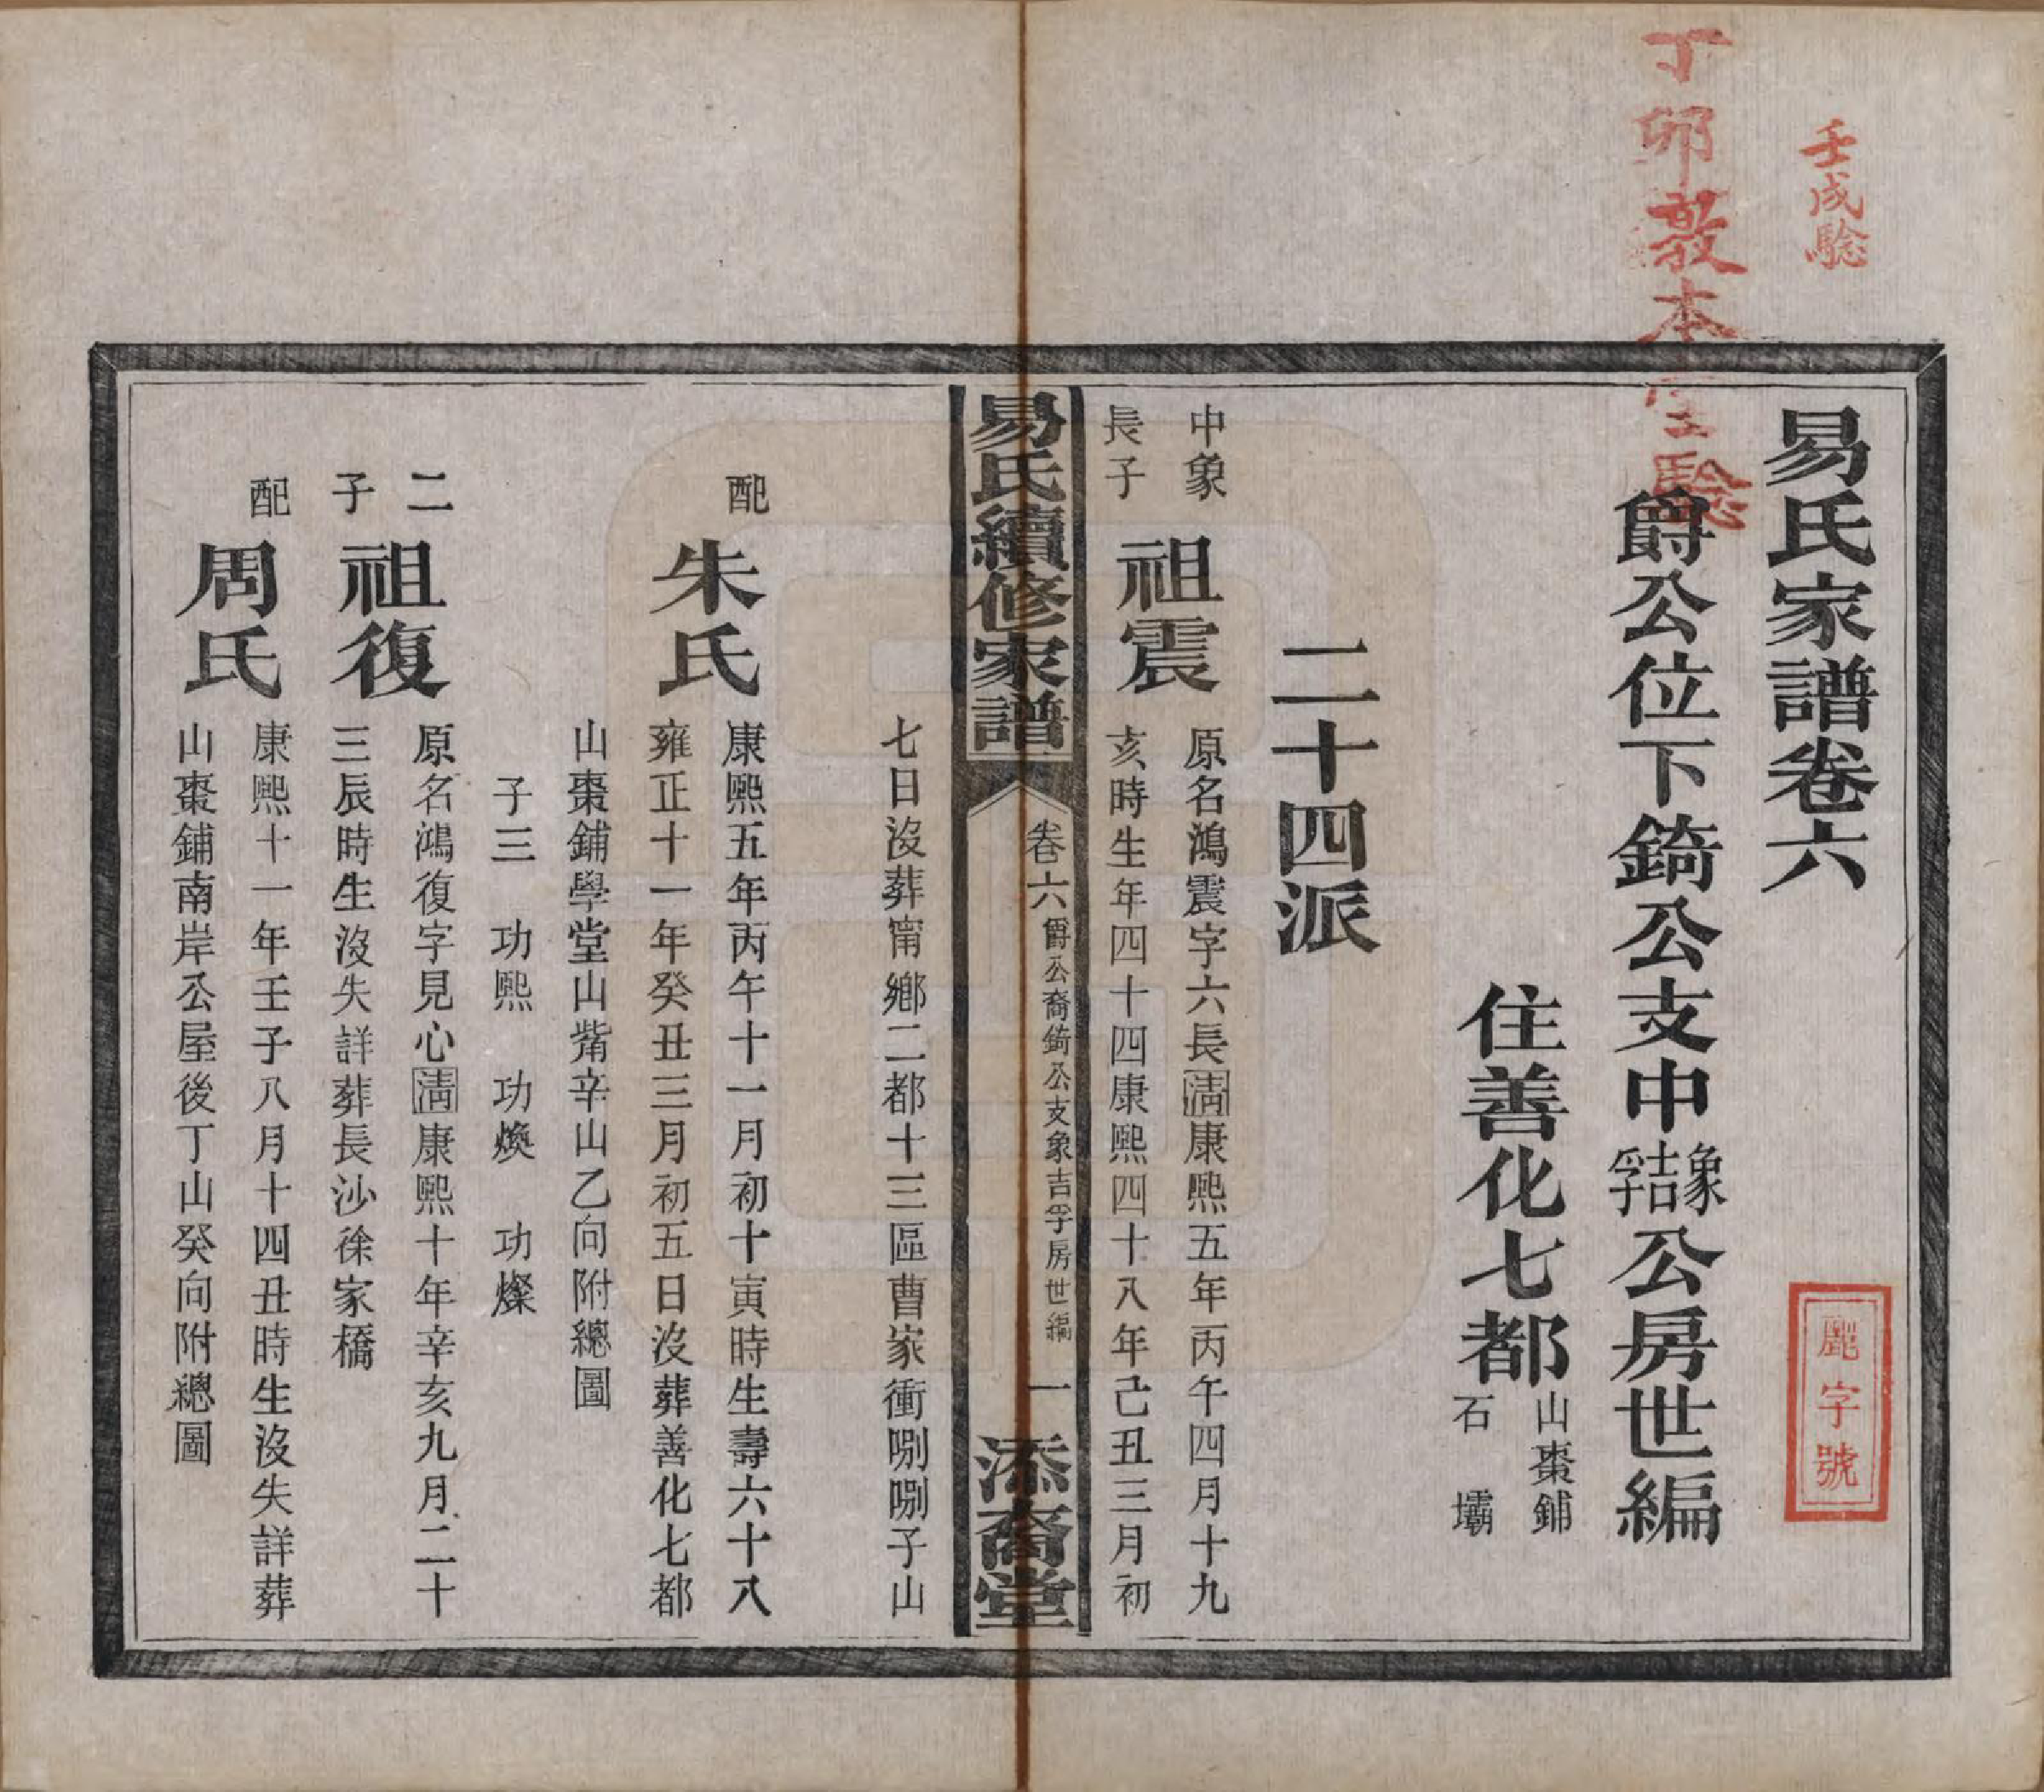 壬戌驗
丁卯敦本堂驗
易氏家譜卷六
麗字號
爵公位下錡公支中象吉孚公房世編
住善化七都山棗鋪
石壩
二十四派
中象
長子
祖震
原名鴻震字六長淸康熙五年丙午四月十九
亥時生年四十四康熙四十八年己丑三月初
易氏續修家譜
卷六
爵公裔錡公支象吉孚房世編
一
添裔堂
七日沒葬甯鄉二都十三區曹家衝唎唎子山
配
朱氏
康熙五年丙午十一月初十寅時生壽六十八
雍正十一年癸丑三月初五日沒葬善化七都
山棗鋪學堂山觜辛山乙向附總圖
子三 功熙 功煥 功燦
二子
祖復
原名鴻復字見心淸康熙十年辛亥九月二十
三辰時生沒失詳葬長沙徐家橋
配
周氏
康熙十一年壬子八月十四丑時生沒失詳葬
山棗鋪南岸公屋後丁山癸向附總圖